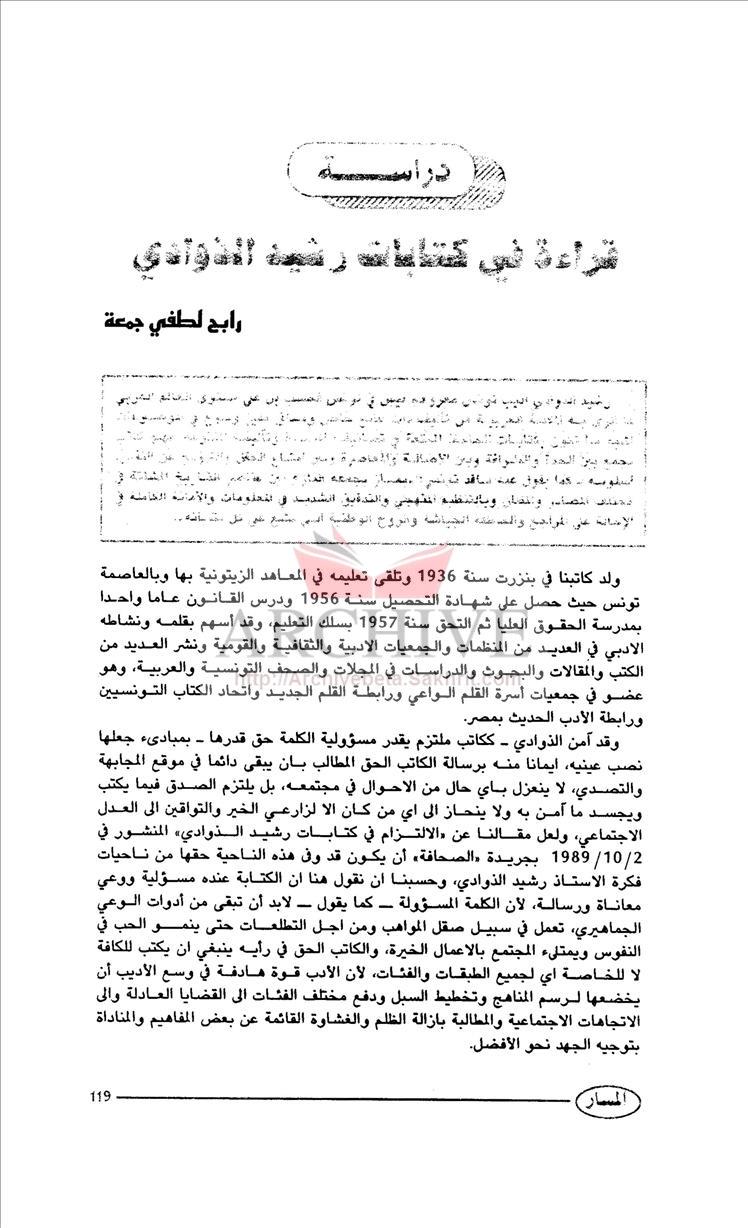 دراســـــة
قراءة في كتابات رشيد الذوادي
رابح لطفي جمعة
رشيد الذوادي اديب تونسي معروف ليس في تونس فحسب بل على مستوى العالم العربي
مجمع بين الجدة والطرافة وبين الاصالة والمعاصرة وبين
مختلف المصادر والمظان وبالتنظيم المنهجي والتدقيق الشديد في المعلومات والأمانة الكاملة في
الإحالة على المراجع والعاطفة الجياشة والروح الوطنية التي تشع في كل كتاباته..
ولد كاتبنا في بنزرت سنة 1936 وتلقى تعليمه في المعاهد الزيتونية بها وبالعاصمة
تونس حيث حصل على شهادة التحصيل سنة 1956 ودرس القانون عاما واحدا
بمدرسة الحقوق العليا ثم التحق سنة 1957 بسلك التعليم، وقد أسهم بقلمه ونشاطه
الادبي في العديد من المنظمات والجمعيات الادبية والثقافية والقومية ونشر العديد من
الكتب والمقالات والبحوث والدراسات في المجلات والصحف التونسية والعربية، وهو
عضو في جمعيات أسرة القلم الواعي ورابطة القلم الجديد واتحاد الكتاب التونسيين
ورابطة الأدب الحديث بمصر.
وقد آمن الذوادي ـ ككاتب ملتزم يقدر مسؤولية الكلمة حق قدرها ـ بمبادىء جعلها
نصب عينيه، ايمانا منه برسالة الكاتب الحق المطالب بان يبقى دائما في موقع المجابهة
والتصدي، لا ينعزل باي حال من الاحوال في مجتمعه، بل يلتزم الصدق فيما يكتب
ويجسد ما آمن به ولا ينحاز الى اي من كان الا لزارعي الخير والتواقين الى العدل
الاجتماعي، ولعل مقالنا عن «الالتزام في كتابات رشيد الذوادي» المنشور في
1989/10/2 بجريدة «الصحافة» أن يكون قد وفى هذه الناحية حقها من ناحيات
فكرة الاستاذ رشيد الذوادي، وحسبنا ان نقول هنا ان الكتابة عنده مسؤلية ووعي
معاناة ورسالة، لأن الكلمة المسؤولة ـ كما يقول ـ لابد أن تبقى من أدوات الوعي
الجماهيري، تعمل في سبيل صقل المواهب ومن اجل التطلعات حتى ينمو الحب في
النفوس ويمتلىء المجتمع بالاعمال الخيرة، والكاتب الحق في رأيه ينبغي ان يكتب للكافة
لا للخاصة اي لجميع الطبقات والفئات، لأن الأدب قوة هادفة في وسع الأديب أن
يخضعها لرسم المناهج وتخطيط السبل ودفع مختلف الفئات الى القضايا العادلة والى
الاتجاهات الاجتماعية والمطالبة بازالة الظلم والغشاوة القائمة عن بعض المفاهيم والمناداة
بتوجيه الجهد نحو الأفضل.
ARCHIVE
http://Archivebeta.Sakhrit.com
المسار
119